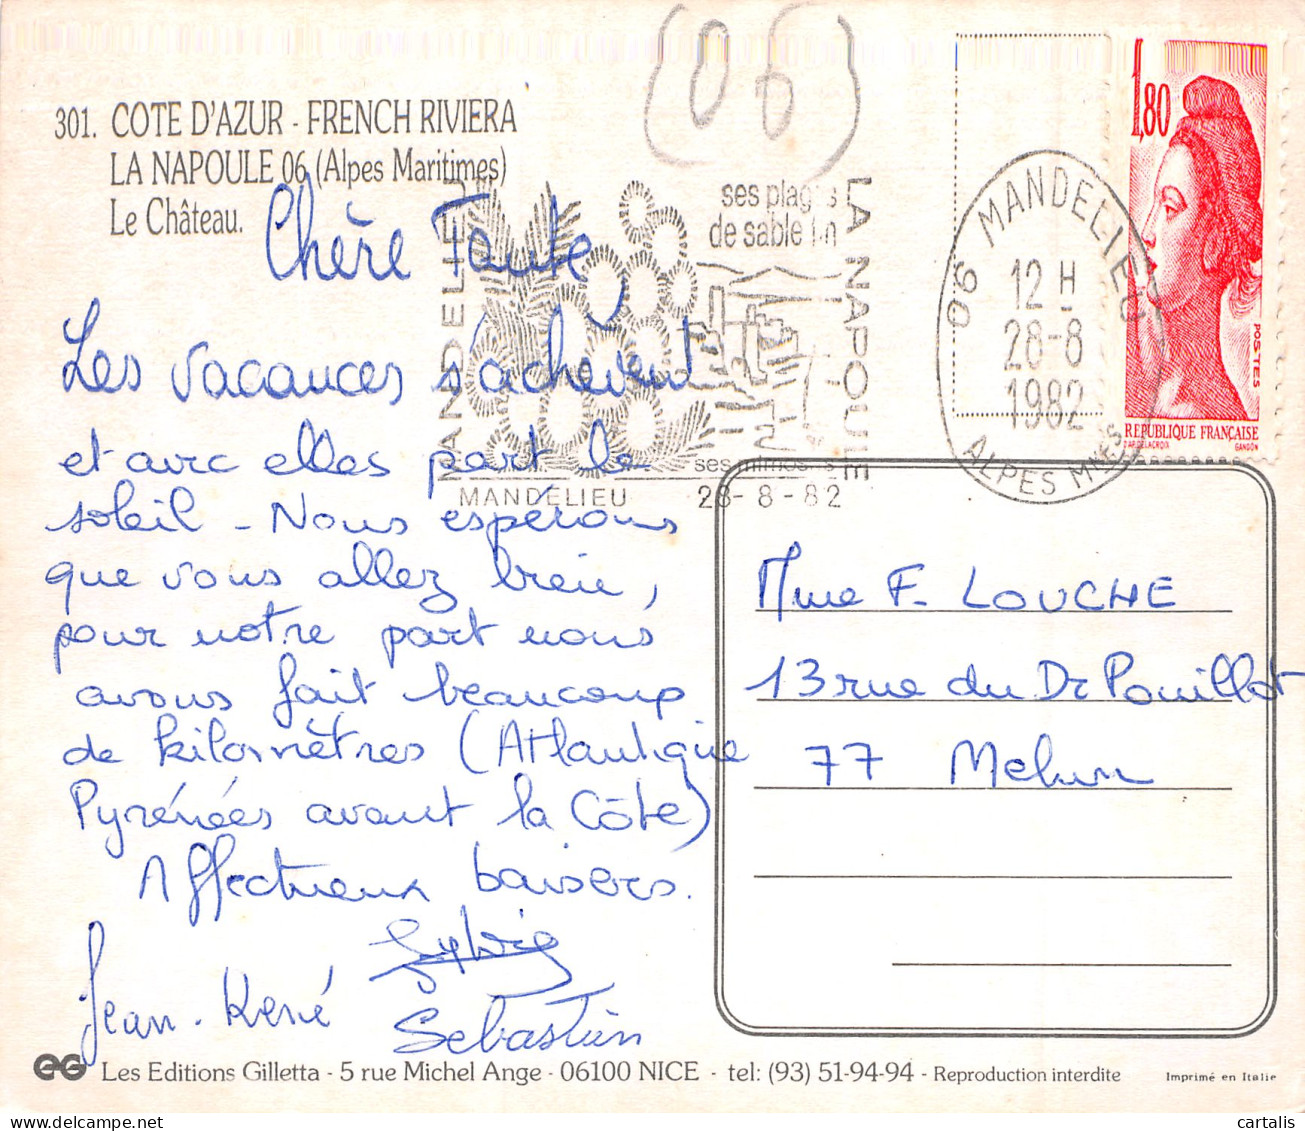 (06)
301. COTE D'AZUR - FRENCH RIVIERA
LA NAPOULE 06 (Alpes Maritimes)
Le Château.
1,80
POSTES
REPUBLIQUE FRANÇAISE
D'AP. DELACROIX GANDON
MANDELIEU
ses plages
de sable fin
LA NAPOULE
ses mimosas
MANDELIEU 28-8-82
06 MANDELIEU
12 H
28-8
1982
ALPES MMES
Chère Tante,
Les vacances s'achèvent
et avec elles part le
soleil - Nous espérons
que vous allez bien,
pour notre part nous
avons fait beaucoup
de kilomètres (Atlantique
Pyrénées avant la Côte)
Affectueux baisers.
Sylvie
Jean-René
Sébastien
Mme F. LOUCHE
13 rue du Dr Pouillot
77 Melun
EG Les Editions Gilletta - 5 rue Michel Ange - 06100 NICE - tel: (93) 51-94-94 - Reproduction interdite
Imprimé en Italie
cartalis